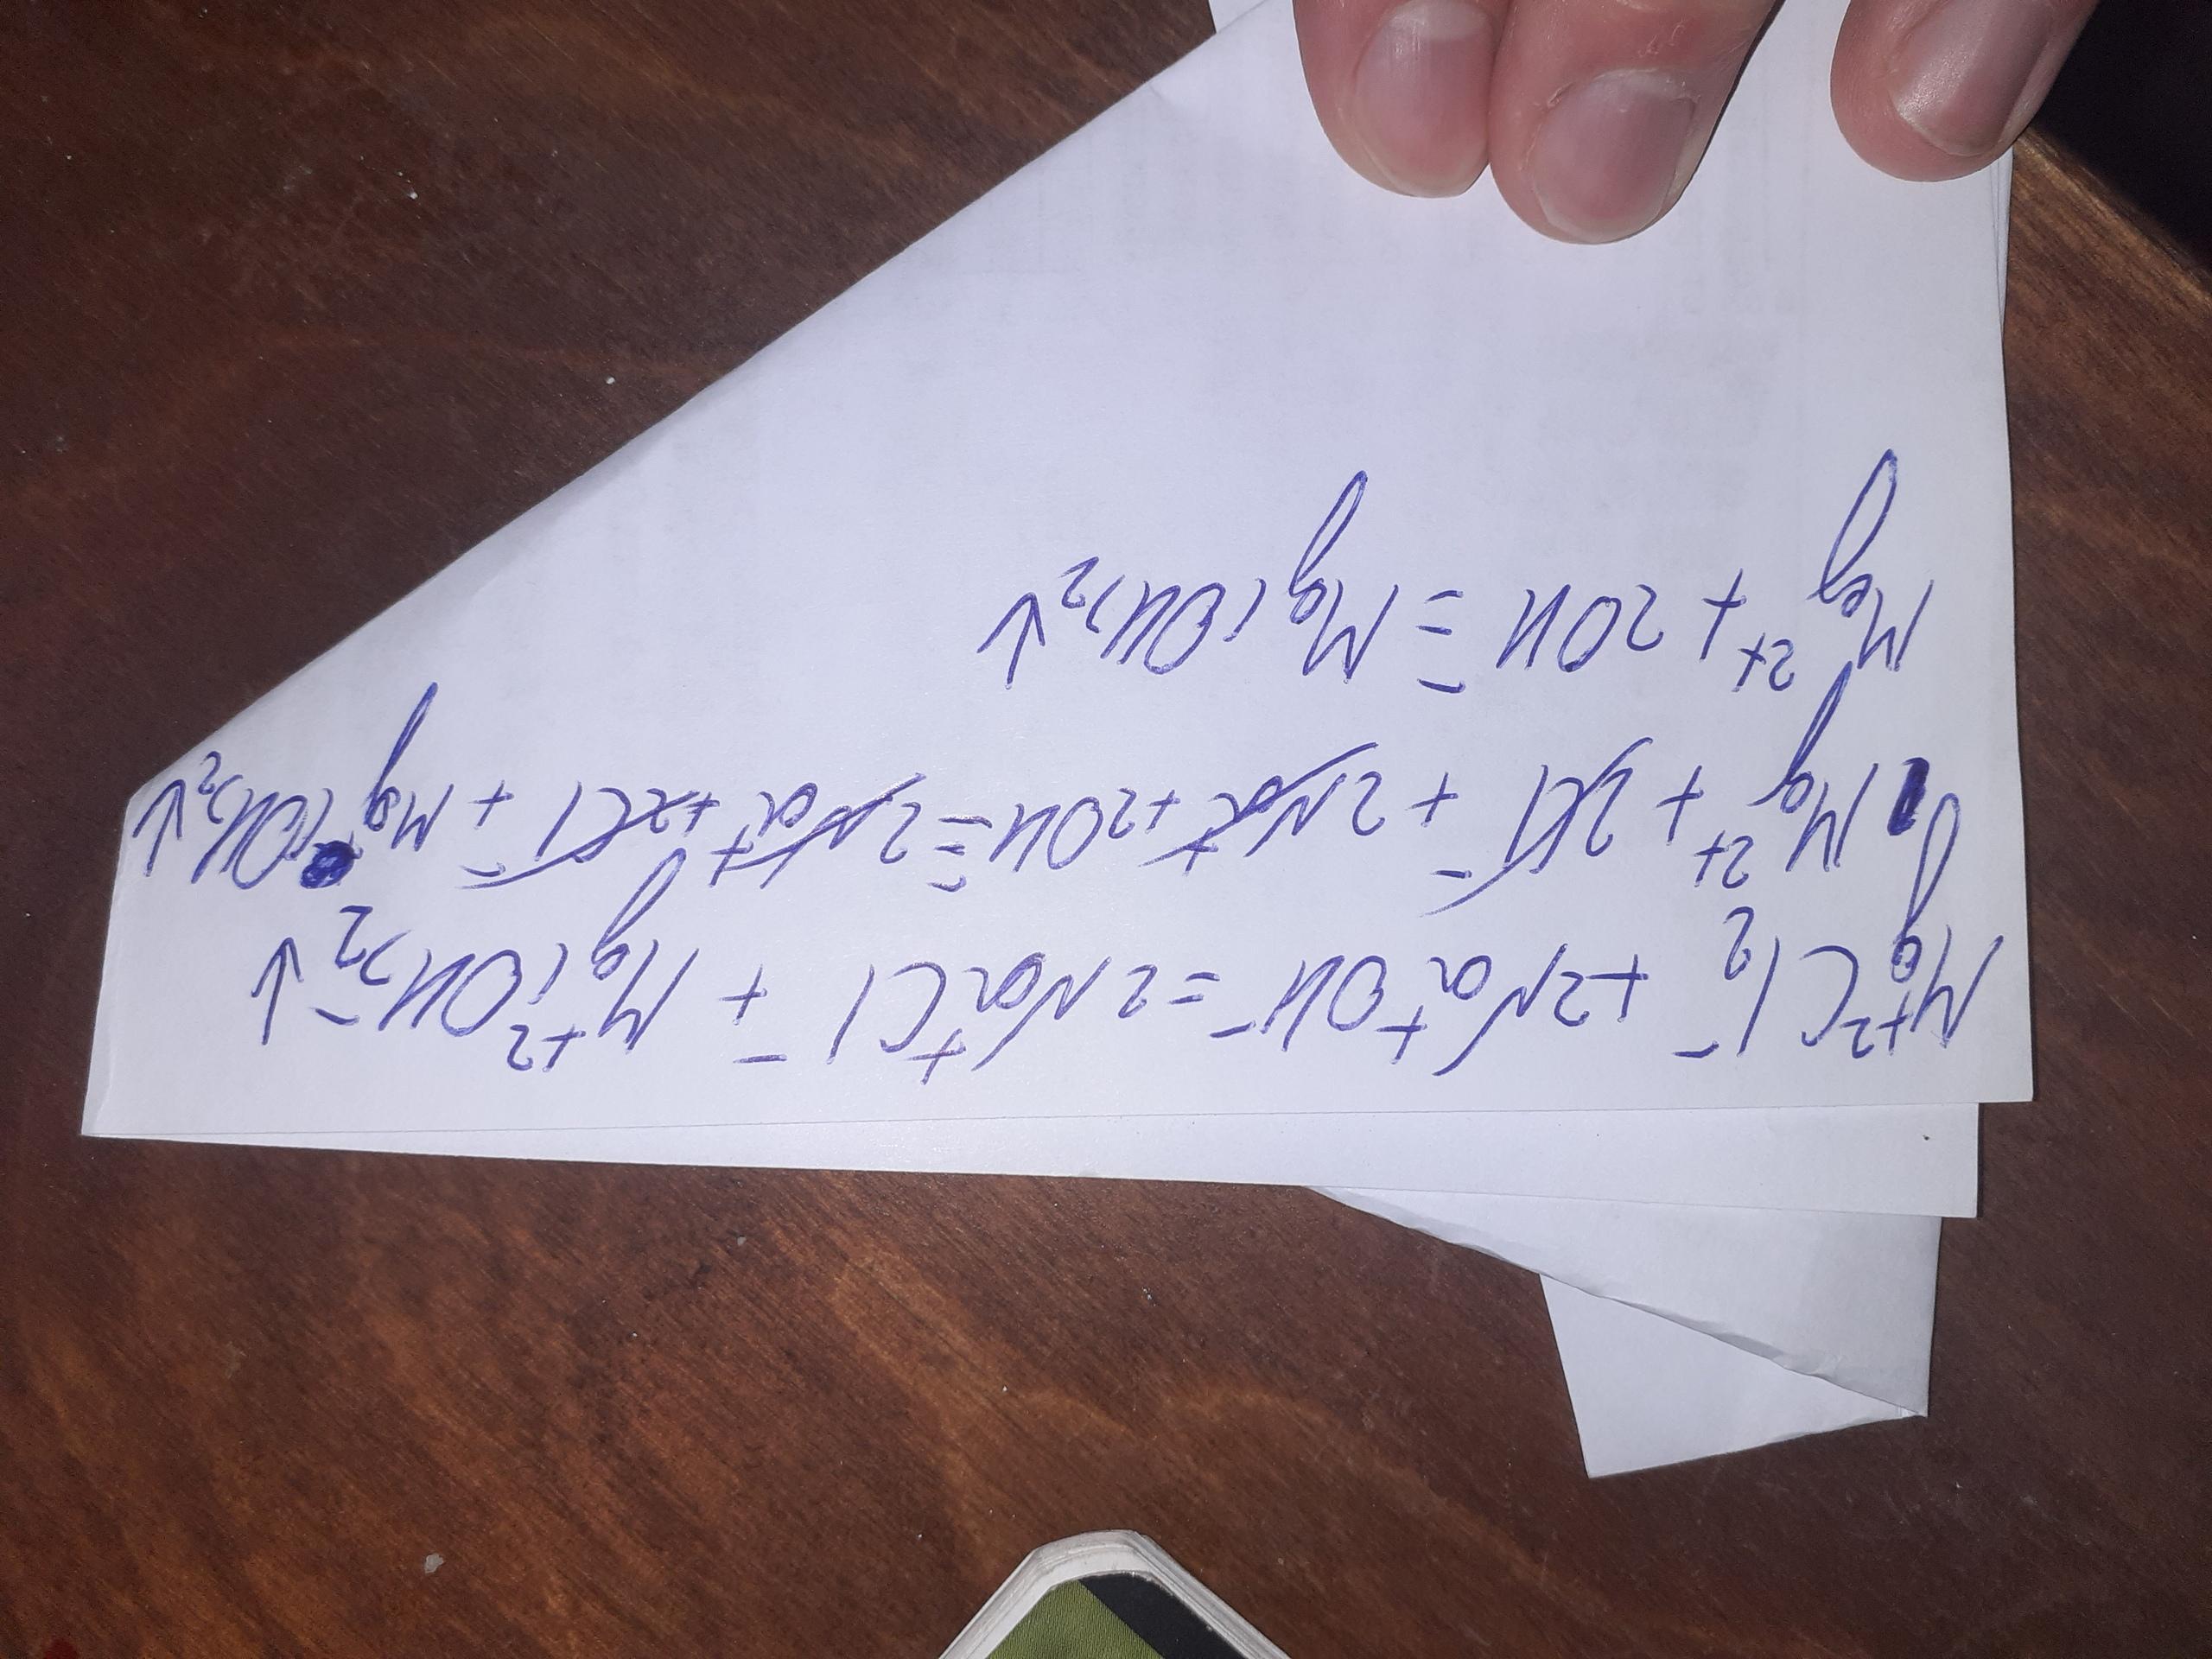 Mg⁺²Cl₂⁻ + 2Na⁺OH⁻ = 2Na⁺Cl⁻ + Mg⁺²(OH)₂⁻↓
Mg²⁺ + 2Cl⁻ + 2Na⁺ + 2OH⁻ = 2Na⁺ + 2Cl⁻ + Mg(OH)₂↓
Mg²⁺ + 2OH⁻ = Mg(OH)₂↓